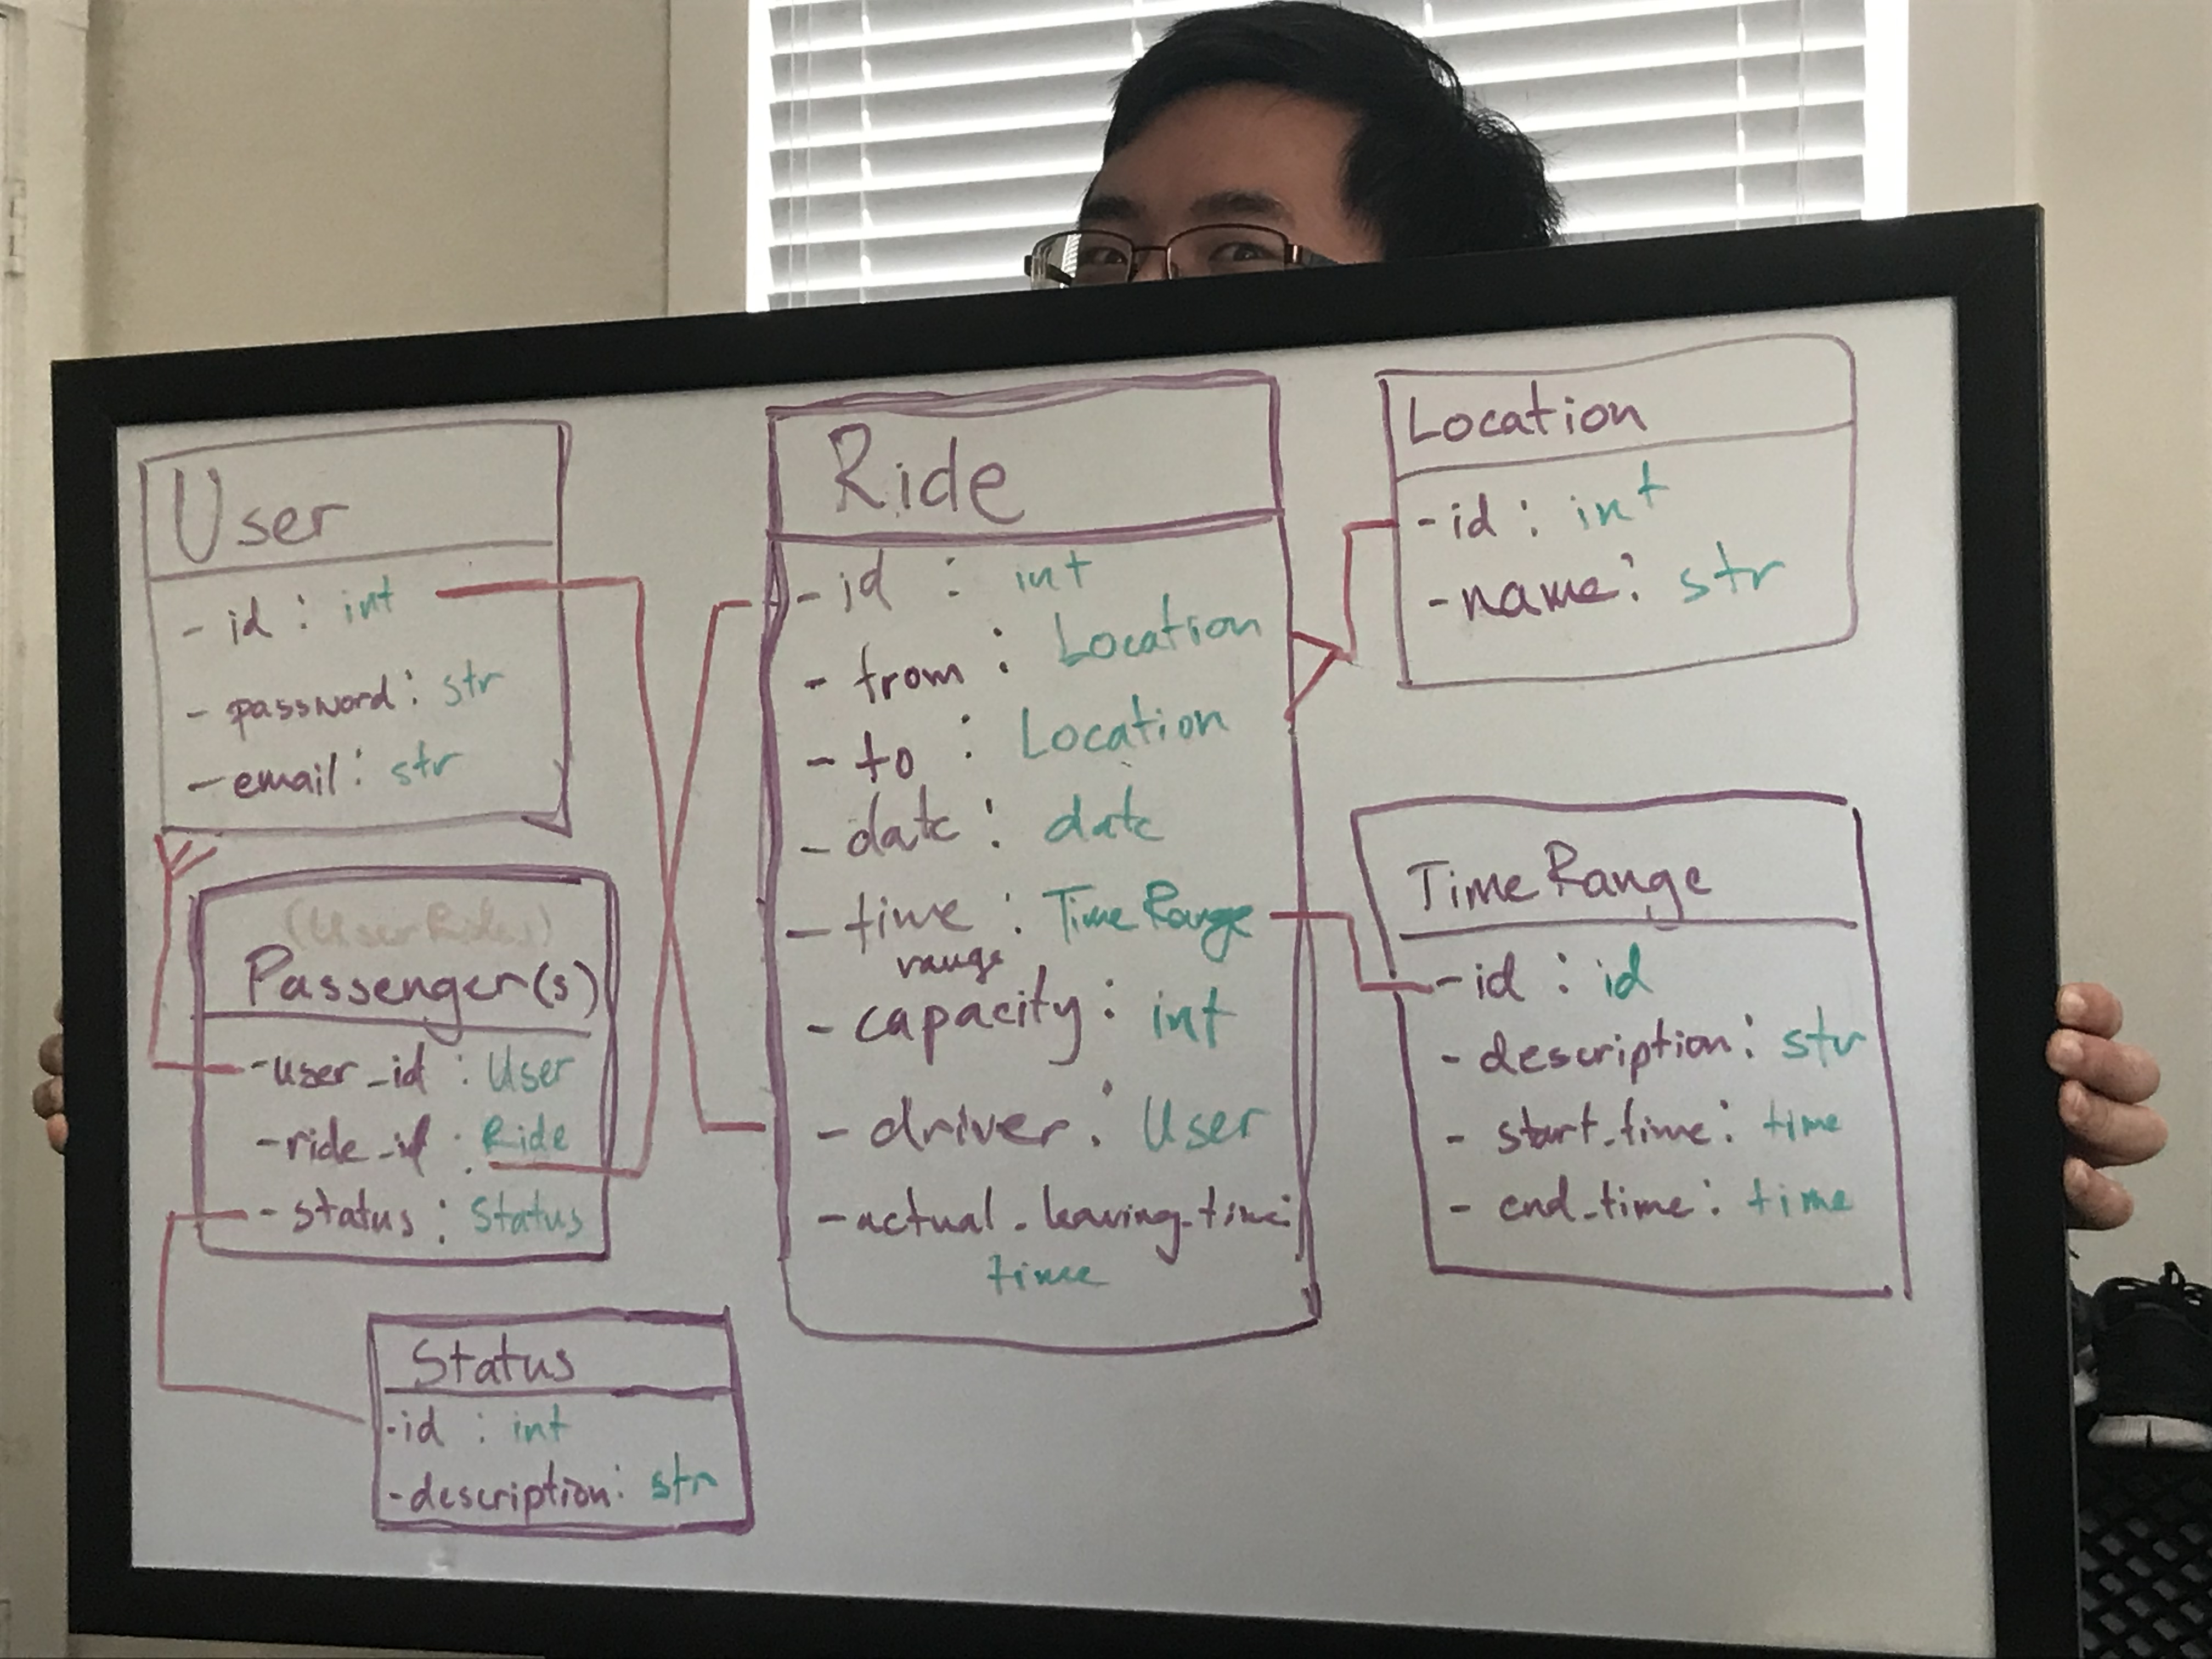 User
- id : int
- password : str
- email : str
(UserRides)
Passenger(s)
- user_id : User
- ride_id : Ride
- status : Status
Status
- id : int
- description : str
Ride
- id : int
- from : Location
- to : Location
- date : date
- time : TimeRange
range
- capacity : int
- driver : User
- actual_leaving_time :
time
Location
- id : int
- name : str
TimeRange
- id : id
- description : str
- start_time : time
- end_time : time